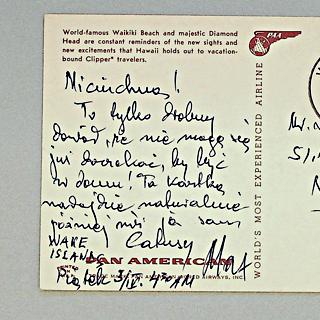 World-famous Waikiki Beach and majestic Diamond
Head are constant reminders of the new sights and
new excitements that Hawaii holds out to vacation-
bound Clipper* travelers.
PAA
To tylko drobny
dowód, że nie mogę się
już doczekać, by być
w domu! Ta kartka
nadejdzie naturalnie
później niż ja sam
WAKE
ISLAND
Całusy
PAN AMERICAN
AIRWAYS, INC.
WORLD'S MOST EXPERIENCED AIRLINE